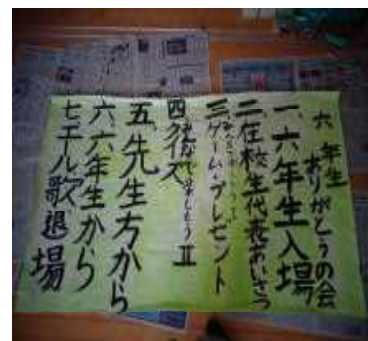 六年生
ありがとうの会
一、六年生入場
二、在校生代表あいさつ
三、ゲーム・プレゼント
四、クイズ
みんなで楽しもうⅡ
五、先生方から
六、六年生から
七、エール歌退場